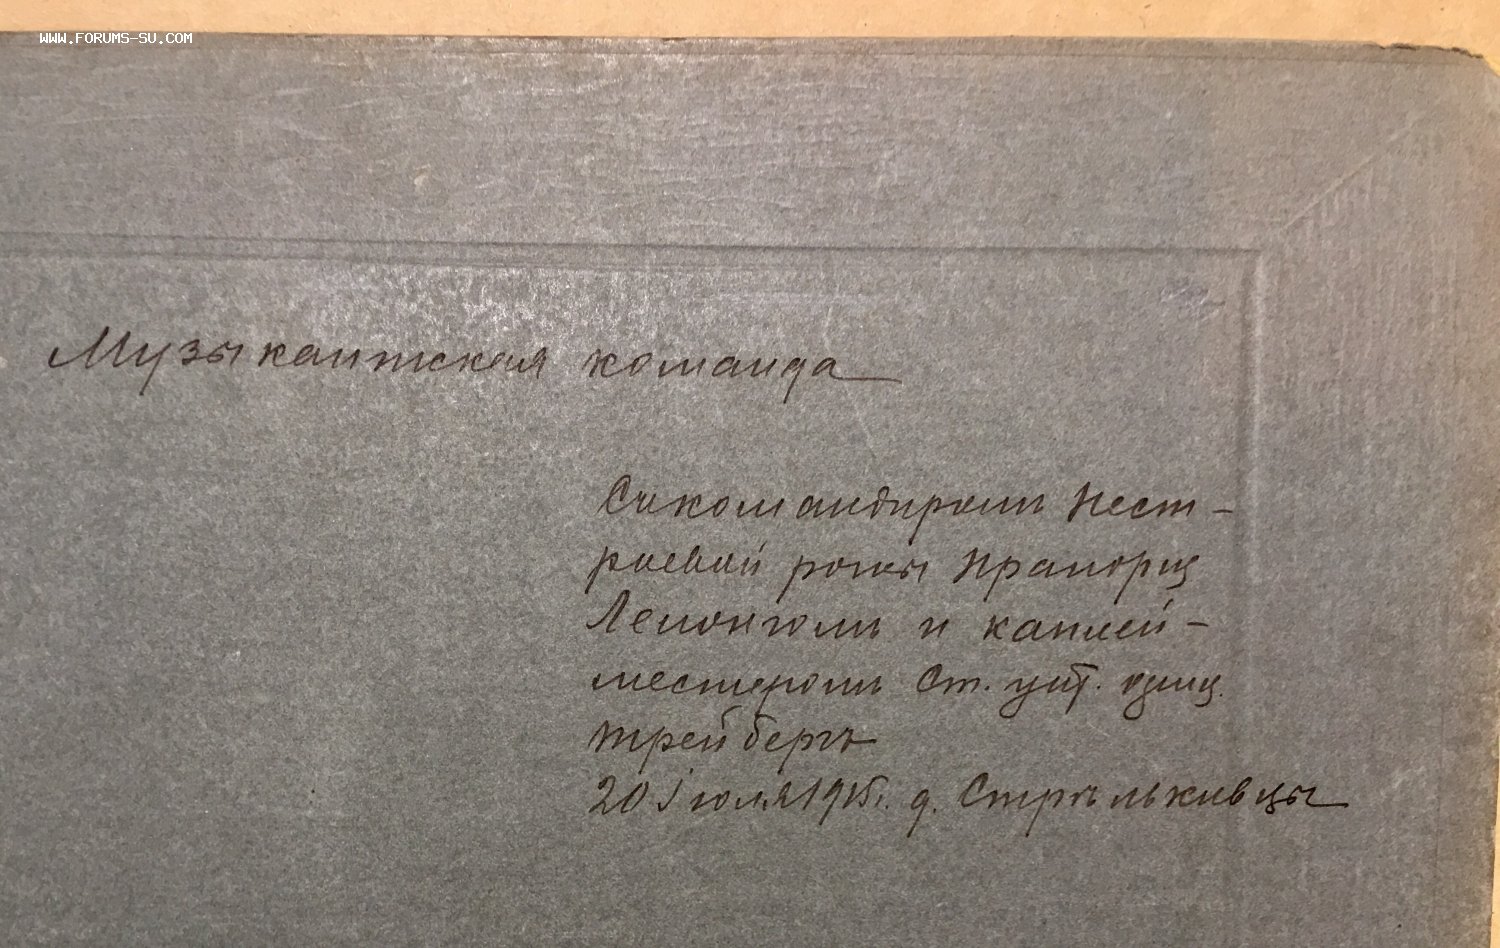 WWW.FORUMS-SU.COM
Музыкантская команда
Съ командиромъ Нест-
роевой роты Прапорщ
и капель-
мейстеромъ Ст. унт. офиц.
Трейберъ
20 Іюля 1915г. д. Стрѣльковцы